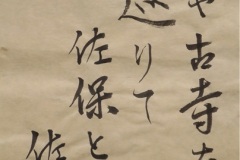 や古寺
巡りて
佐保と
佐